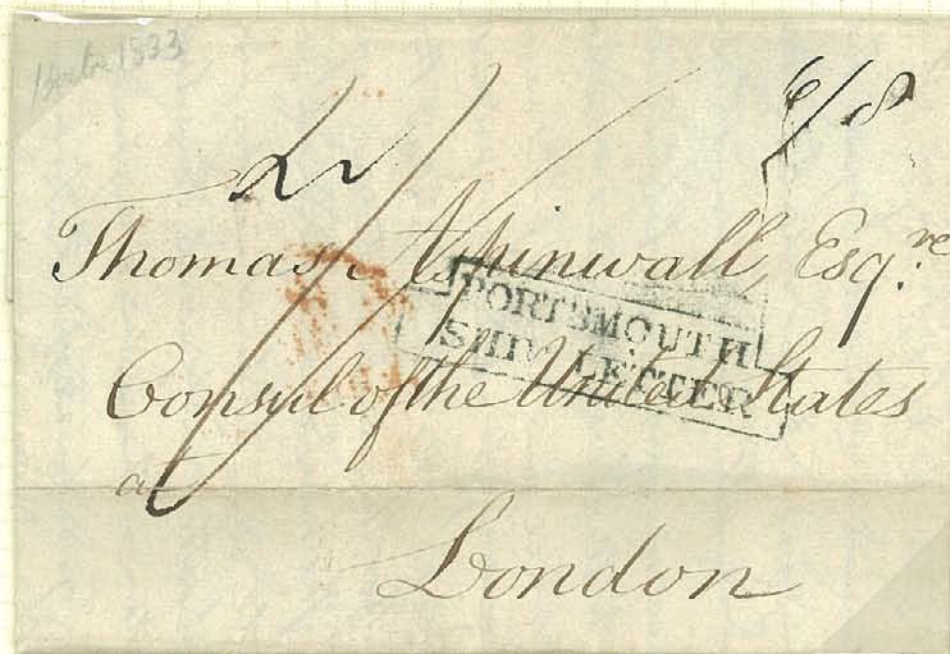 1833
6/8
Thomas Aspinwall, Esq.re
PORTSMOUTH
SHIP LETTER
Consul of the United States
at
London